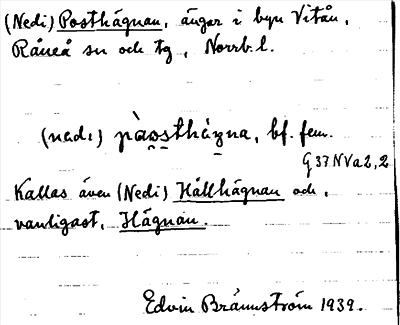 (Nedi) Posthägnan, ängar i byn Vitån,
Råneå sn och tg, Norrb. l.
(nedi) pàosthä́gna, bf. fem.
G 37 NVa 2, 2
Kallas även (Nedi) Hållhägnan och,
vanligast, Hägnan.
Edvin Brännström 1939.